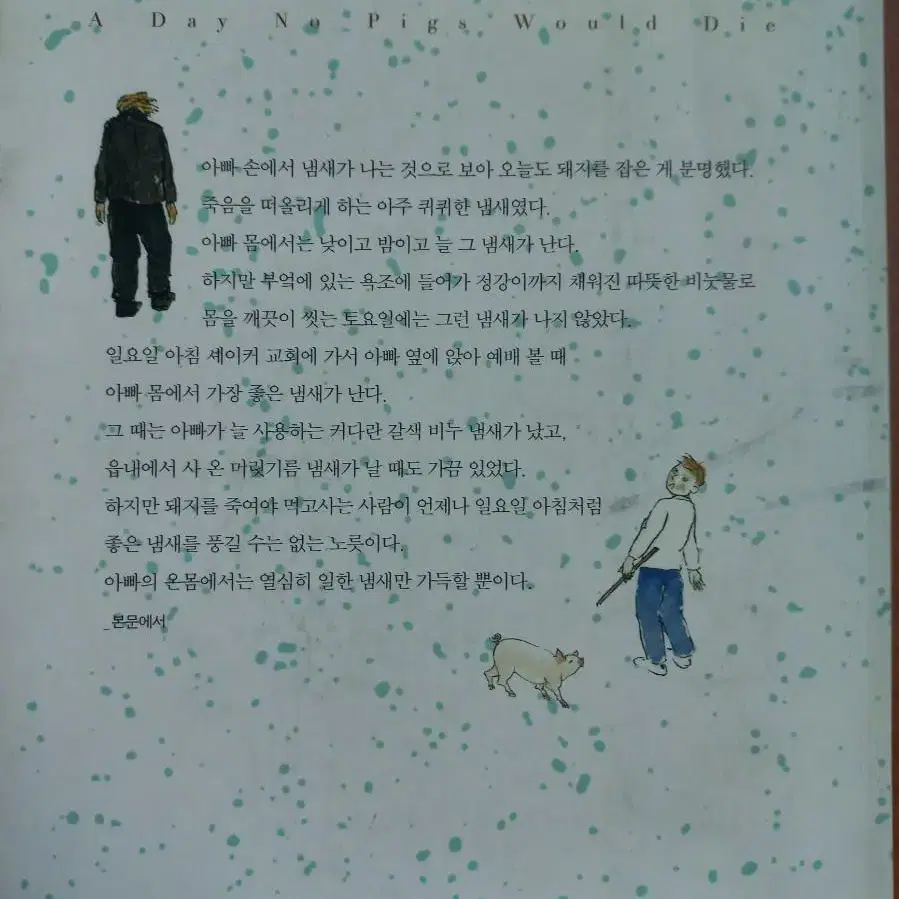 A Day No Pigs Would Die
아빠 손에서 냄새가 나는 것으로 보아 오늘도 돼지를 잡은 게 분명했다.
죽음을 떠올리게 하는 아주 퀴퀴한 냄새였다.
아빠 몸에서는 낮이고 밤이고 늘 그 냄새가 난다.
하지만 부엌에 있는 욕조에 들어가 정강이까지 채워진 따뜻한 비눗물로
몸을 깨끗이 씻는 토요일에는 그런 냄새가 나지 않았다.
일요일 아침 셰이커 교회에 가서 아빠 옆에 앉아 예배 볼 때
아빠 몸에서 가장 좋은 냄새가 난다.
그 때는 아빠가 늘 사용하는 커다란 갈색 비누 냄새가 났고,
읍내에서 사 온 머릿기름 냄새가 날 때도 가끔 있었다.
하지만 돼지를 죽여야 먹고사는 사람이 언제나 일요일 아침처럼
좋은 냄새를 풍길 수는 없는 노릇이다.
아빠의 온몸에서는 열심히 일한 냄새만 가득할 뿐이다.
_본문에서